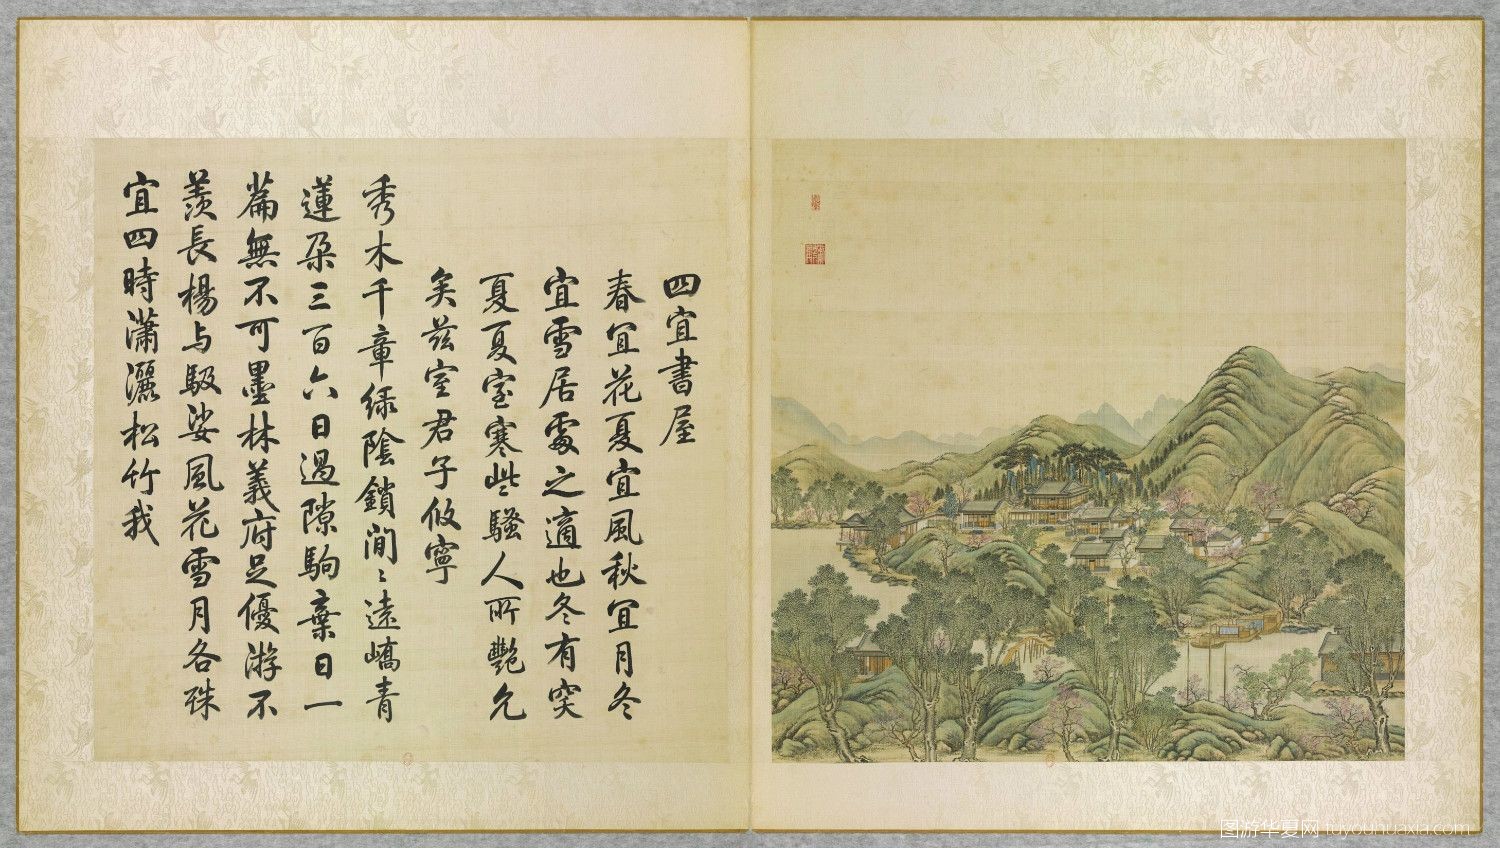 四宜書屋
春宜花夏宜風秋宜月冬
宜雪居處之適也冬有突
夏夏室寒些騷人所艷允
矣茲室君子攸寧
秀木千章綠陰鎖間〻遠嶠青
蓮朶三百六日過隙駒棄日一
篇無不可墨林義府足優游不
羨長楊与馺娑風花雪月各殊
宜四時瀟灑松竹我
图游华夏网 tuyouhuaxia.com